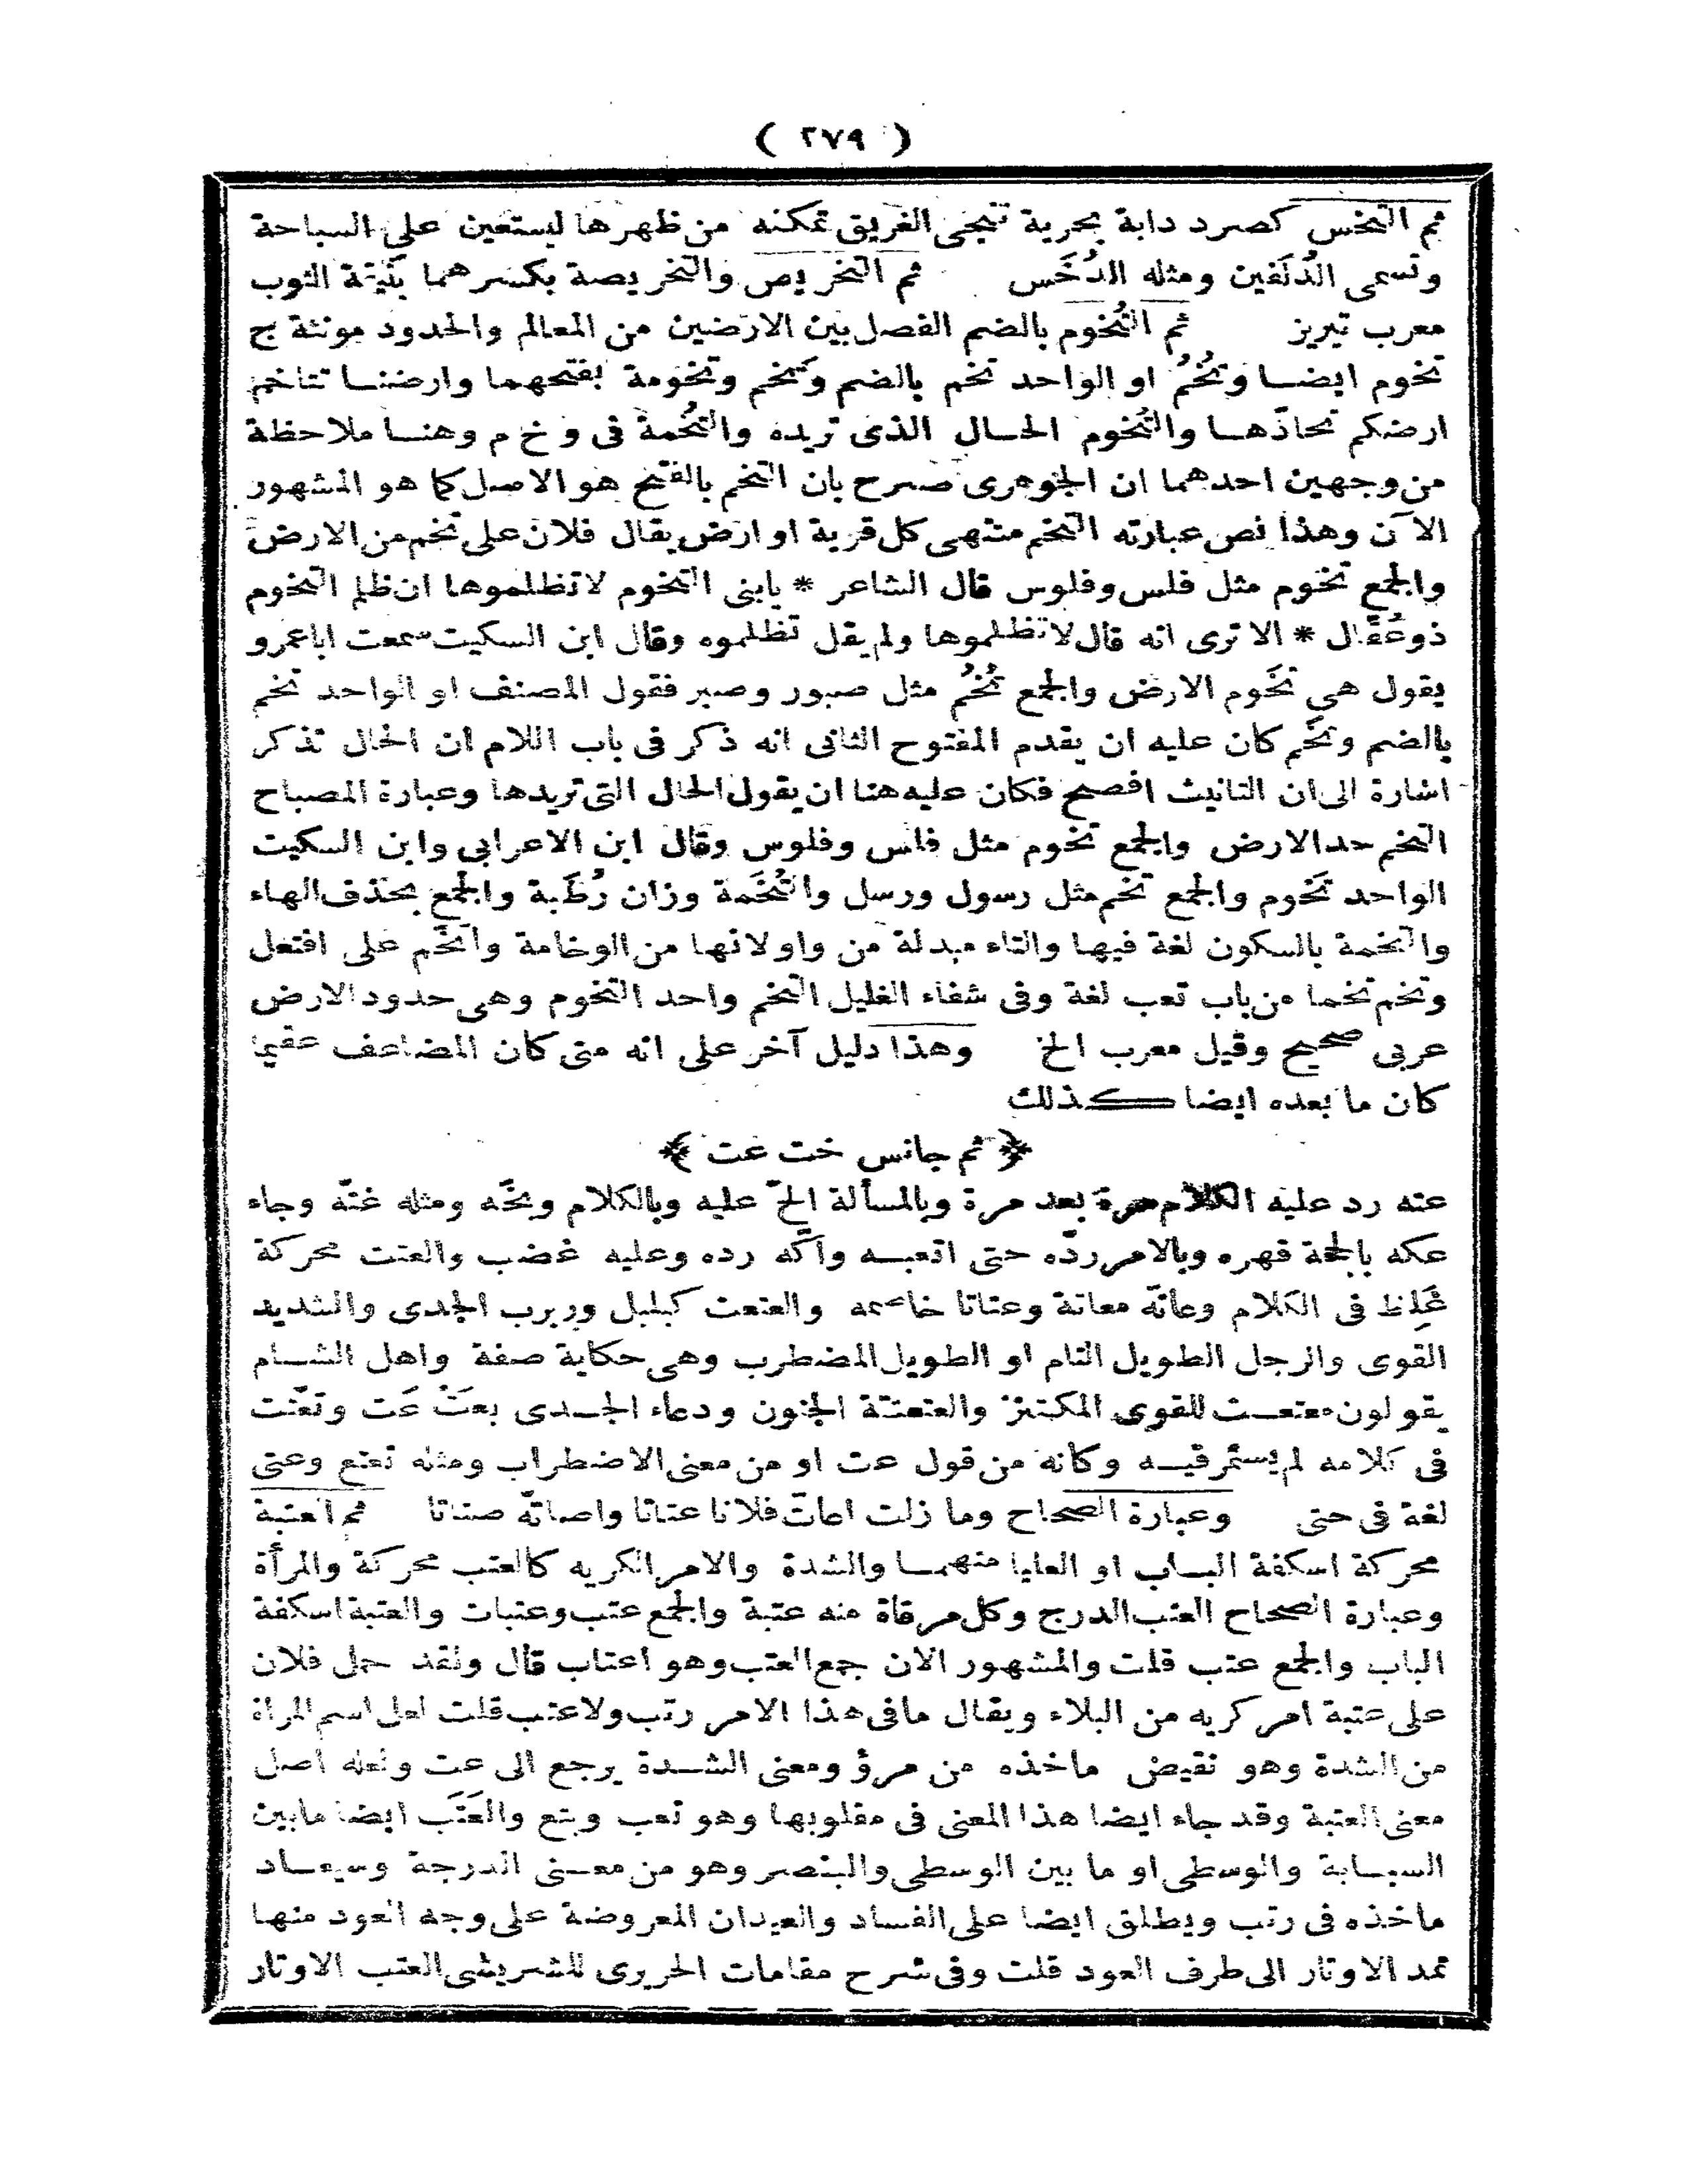 ( ٢٧٩ )
ثم التخس كصرد دابة بحرية تنجى الغريق تمكنه من ظهرها ليستعين على السباحة
وتسمى الدُلَفين ومثله الدُخَس ثم التخريص والتخريصة بكسرهما بَنيقة الثوب
معرب تيريز ثم التُخوم بالضم الفصل بين الارضين من المعالم والحدود مونثة ج
تخوم ايضا وتُخُمُ او الواحد تخم بالضم وتَخم وتخومة بفتحهما وارضنا تتاخم
ارضكم تحادّها والتُخوم الحال الذى تريده والتُخُمة فى و خ م وهنا ملاحظة
من وجهين احدهما ان الجوهرى صرح بان التخم بالفتح هو الاصل كما هو المشهور
الآن وهذا نص عبارته التخم منتهى كل قرية او ارض يقال فلان على تخم من الارض
والجمع تخوم مثل فلس وفلوس قال الشاعر * يابنى التخوم لاتظلموها ان ظلم التخوم
ذو عُقّال * الا ترى انه قال لاتظلموها ولم يقل تظلموه وقال ابن السكيت سمعت اباعمرو
يقول هى تَخوم الارض والجمع تُخُمُ مثل صبور وصبر فقول المصنف او الواحد تخم
بالضم وتَخم كان عليه ان يقدم المفتوح الثانى انه ذكر فى باب اللام ان الحال تذكر
اشارة الى ان التانيث افصح فكان عليه هنا ان يقول الحال التى تريدها وعبارة المصباح
التخم حد الارض والجمع تخوم مثل فلس وفلوس وقال ابن الاعرابى وابن السكيت
الواحد تَخوم والجمع تخم مثل رسول ورسل والتُخَمة وزان رُطَبة والجمع بحذف الهاء
والتخمة بالسكون لغة فيها والتاء مبدلة من واو لانها من الوخامة واتّخم على افتعل
وتخم تخما من باب تعب لغة وفى شفاء الغليل التخم واحد التخوم وهى حدود الارض
عربى صحيح وقيل معرب الخ وهذا دليل آخر على انه متى كان المضاعف عقيما
كان ما بعده ايضا كذلك
﴿ ثم جانس خت عت ﴾
عته رد عليه الكلام مرة بعد مرة وبالمسألة الحّ عليه وبالكلام وبّخه ومثله غتّه وجاء
عكه بالحجة قهره وبالامر ردّه حتى اتعبه واكّه رده وعليه غضب والعتت محركة
غِلظ فى الكلام وعاتّه معاتة وعتاتا خاصمه والعتعت كبلبل وربرب الجدى والشديد
القوى والرجل الطويل التام او الطويل المضطرب وهى حكاية صفة واهل الشام
يقولون معتعت للقوى المكتنز والعتعتة الجنون ودعاء الجدى بعَتْ عَت وتعّتت
فى كلامه لم يستمر فيه وكانه من قول عت او من معنى الاضطراب ومثله تعتع وعتى
لغة فى حتى وعبارة الصحاح وما زلت اعاتّ فلانا عتاتا واصاتّه صتاتا ثم العتبة
محركة اسكفة الباب او العليا منهما والشدة والامر الكريه كالعتب محركة والمرأة
وعبارة الصحاح العتب الدرج وكل مرقاة منه عتبة والجمع عتب وعتبات والعتبة اسكفة
الباب والجمع عتب قلت والمشهور الان جمع العتب وهو اعتاب قال ولقد حمل فلان
على عتبة امر كريه من البلاء ويقال مافى هذا الامر رتب ولا عتب قلت لعل اسم المراة
من الشدة وهو نقيض ماخذه من مرؤ ومعنى الشدة يرجع الى عت ولعله اصل
معنى العتبة وقد جاء ايضا هذا المعنى فى مقلوبها وهو تعب وبتع والعَتَب ايضا مابين
السبابة والوسطى او ما بين الوسطى والبنصر وهو من معنى الدرجة وسيعاد
ماخذه فى رتب ويطلق ايضا على الفساد والعيدان المعروضة على وجه العود منها
تمد الاوتار الى طرف العود قلت وفى شرح مقامات الحريرى للشريشى العتب الاوتار